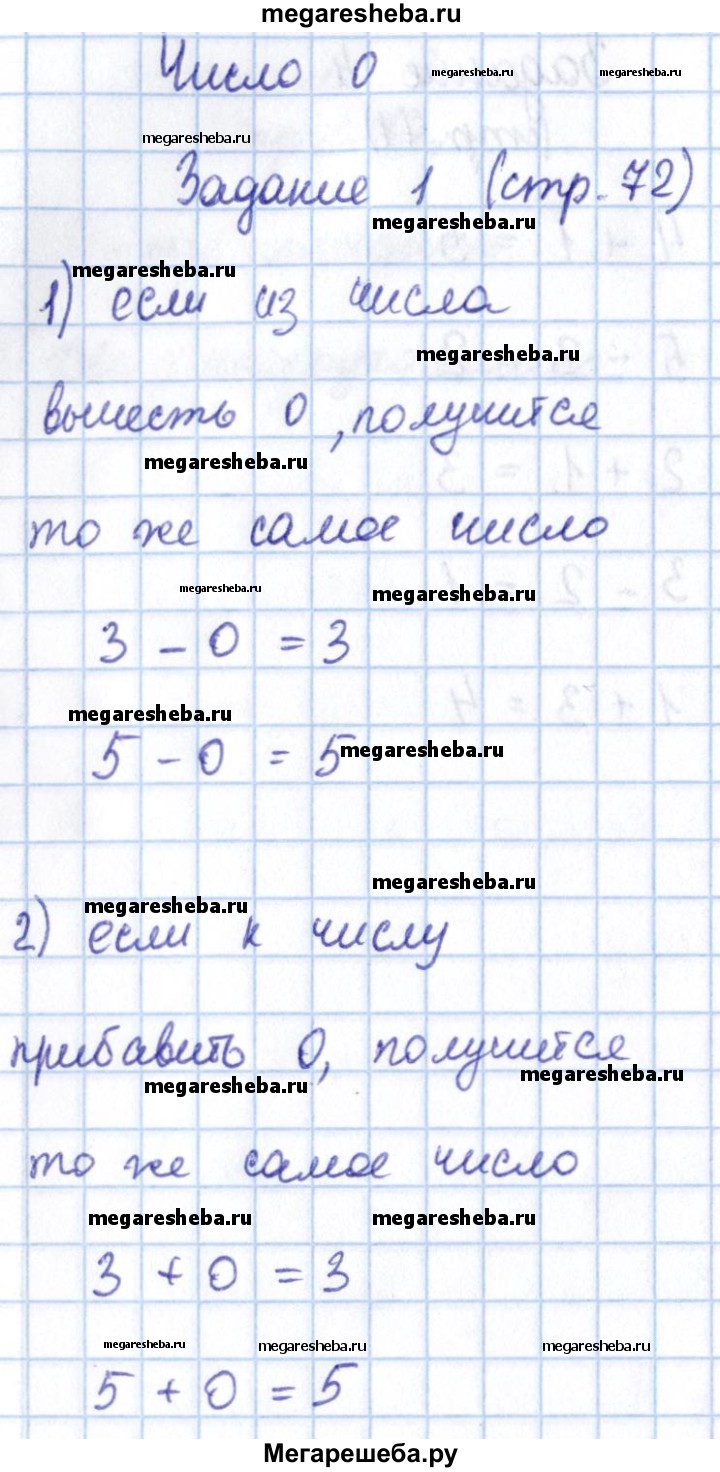 megaresheba.ru
Число 0 megaresheba.ru megaresheba.ru
megaresheba.ru
Задание 1 (стр. 72)
megaresheba.ru
megaresheba.ru
1) если из числа
megaresheba.ru
вычесть 0, получится
megaresheba.ru
то же самое число
megaresheba.ru megaresheba.ru
3 - 0 = 3
megaresheba.ru
5 - 0 = 5 megaresheba.ru
megaresheba.ru
megaresheba.ru
2) если к числу
прибавить 0, получится
megaresheba.ru megaresheba.ru
то же самое число
megaresheba.ru megaresheba.ru
3 + 0 = 3
megaresheba.ru megaresheba.ru megaresheba.ru
5 + 0 = 5
Мегарешеба.ру